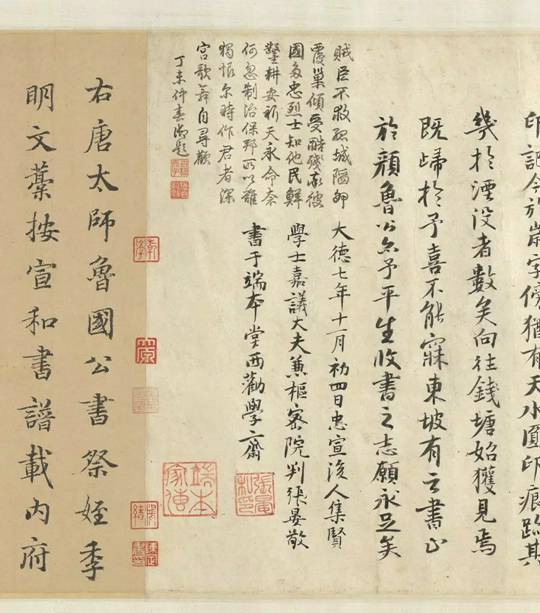 印記今於歲字傍猶有天水圓印痕跡其
幾於湮沒者數矣向在錢塘始獲見焉
既歸於予喜不能寐東坡有云書止
於顏魯公亦予平生收書之志願永足矣
大德七年十一月初四日忠宣後人集賢
學士嘉議大夫兼樞密院判張晏敬
書于端本堂西勸學齋
賊臣不救孤城陷卵
覆巢傾受酷殘彼
國多忠烈士知他民鮮
鑿耕安祈天永命奈
何忽制治保邦所以難
獨恨爾時作君者深
宮歌舞自尋歡
丁未仲春御題
端本家傳
右唐太師魯國公書祭姪季
明文藁按宣和書譜載內府